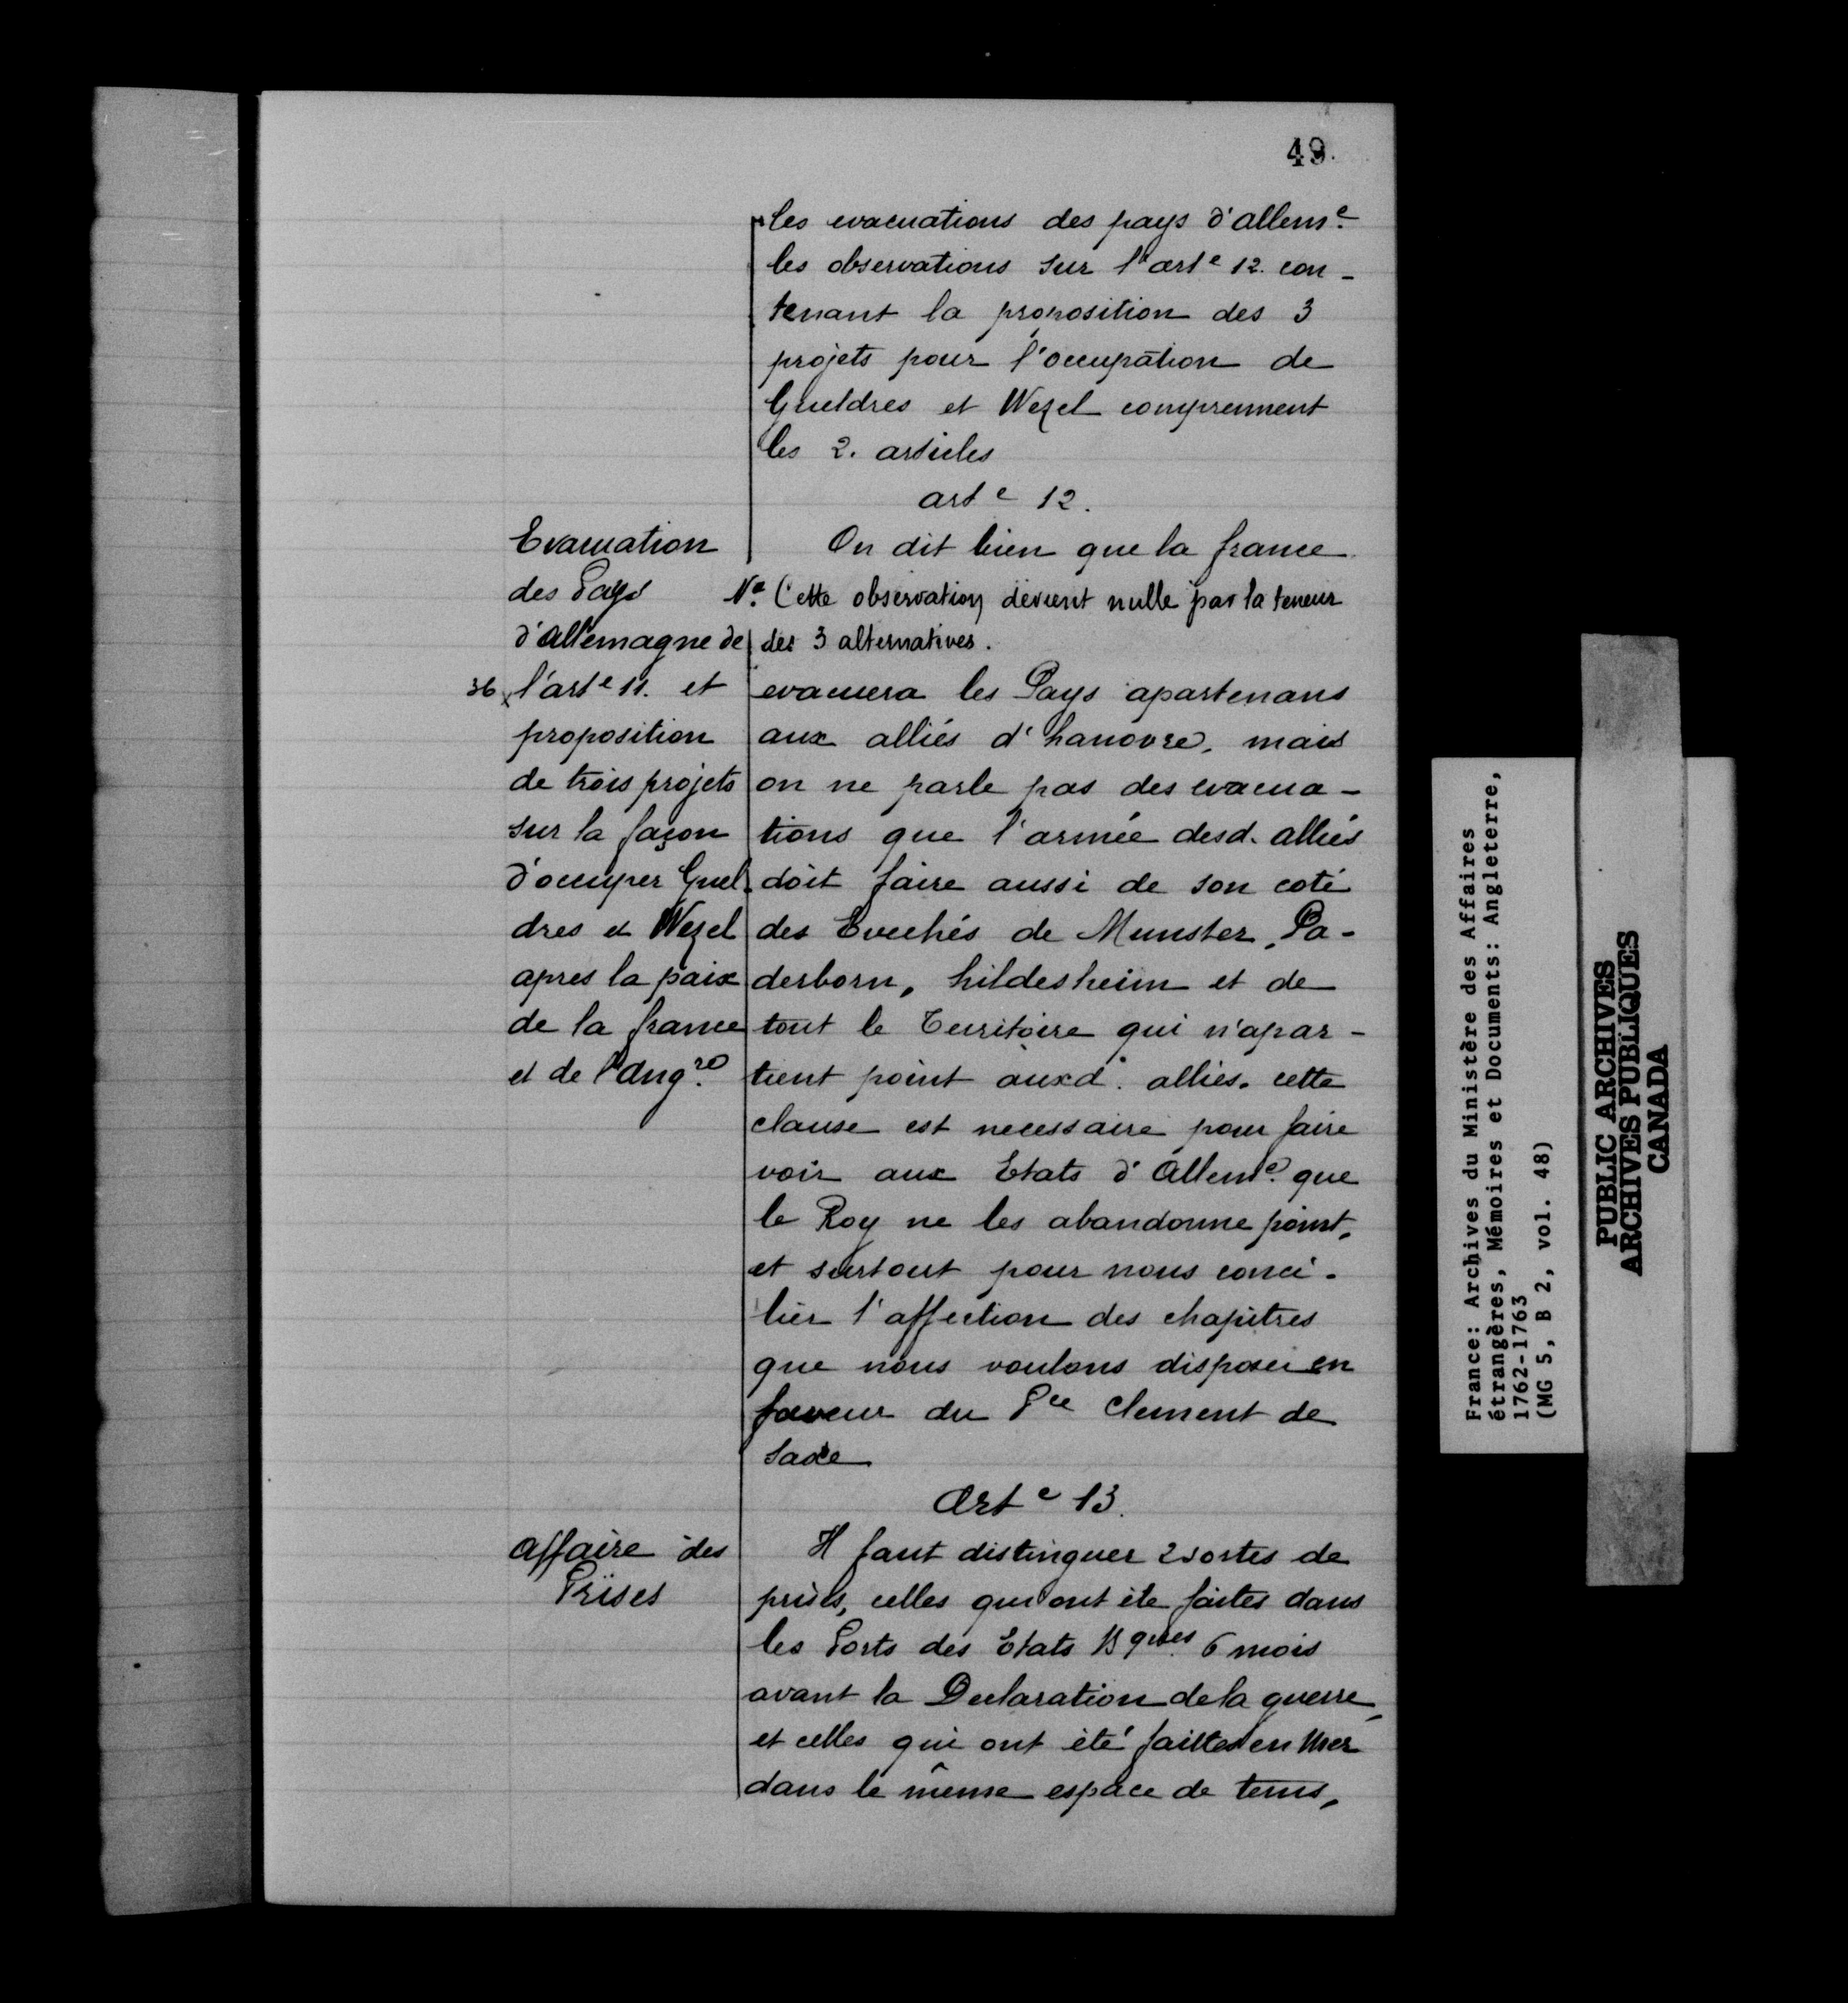 49.
les evacuations des pays d'allem.e
les observations sur l'art.e 12. con-
tenant la proposition des 3
projets pour l'occupation de
Gueldres et Wezel comprennent
les 2. articles
art e 12.
Evacuation
des Pays
d'Allemagne de
36 x l'art e 11. et
proposition
de trois projets
sur la façon
d'occuper Guel-
dres et Wezel
apres la paix
de la france
et de l'Ang.re
On dit bien que la france
Na. Cette observation devient nulle par la teneur
des 3 alternatives.
evacuera les Pays apartenans
aux alliés d'hanovre, mais
on ne parle pas des evacua-
tions que l'armée desd. alliés
doit faire aussi de son coté
des Evechés de Munster, Pa-
derborn, hildesheim et de
tout le Territoire qui n'apar-
tient point auxd. alliés. cette
clause est necessaire pour faire
voir aux Etats d'Allem.e que
le Roy ne les abandonne point,
et surtout pour nous conci-
lier l'affection des chapitres
que nous voulons disposer en
faveur du Pce Clement de
Saxe
Art e 13.
affaire des
Prises
Il faut distinguer 2 sortes de
prises, celles qui ont ète faites dans
les Ports des Etats Bques. 6 mois
avant la Declaration de la guerre,
et celles qui ont été faittes en Mer
dans le même espace de tems,
France: Archives du Ministère des Affaires
étrangères, Mémoires et Documents: Angleterre,
1762-1763
(MG 5, B 2, vol. 48)
PUBLIC ARCHIVES
ARCHIVES PUBLIQUES
CANADA